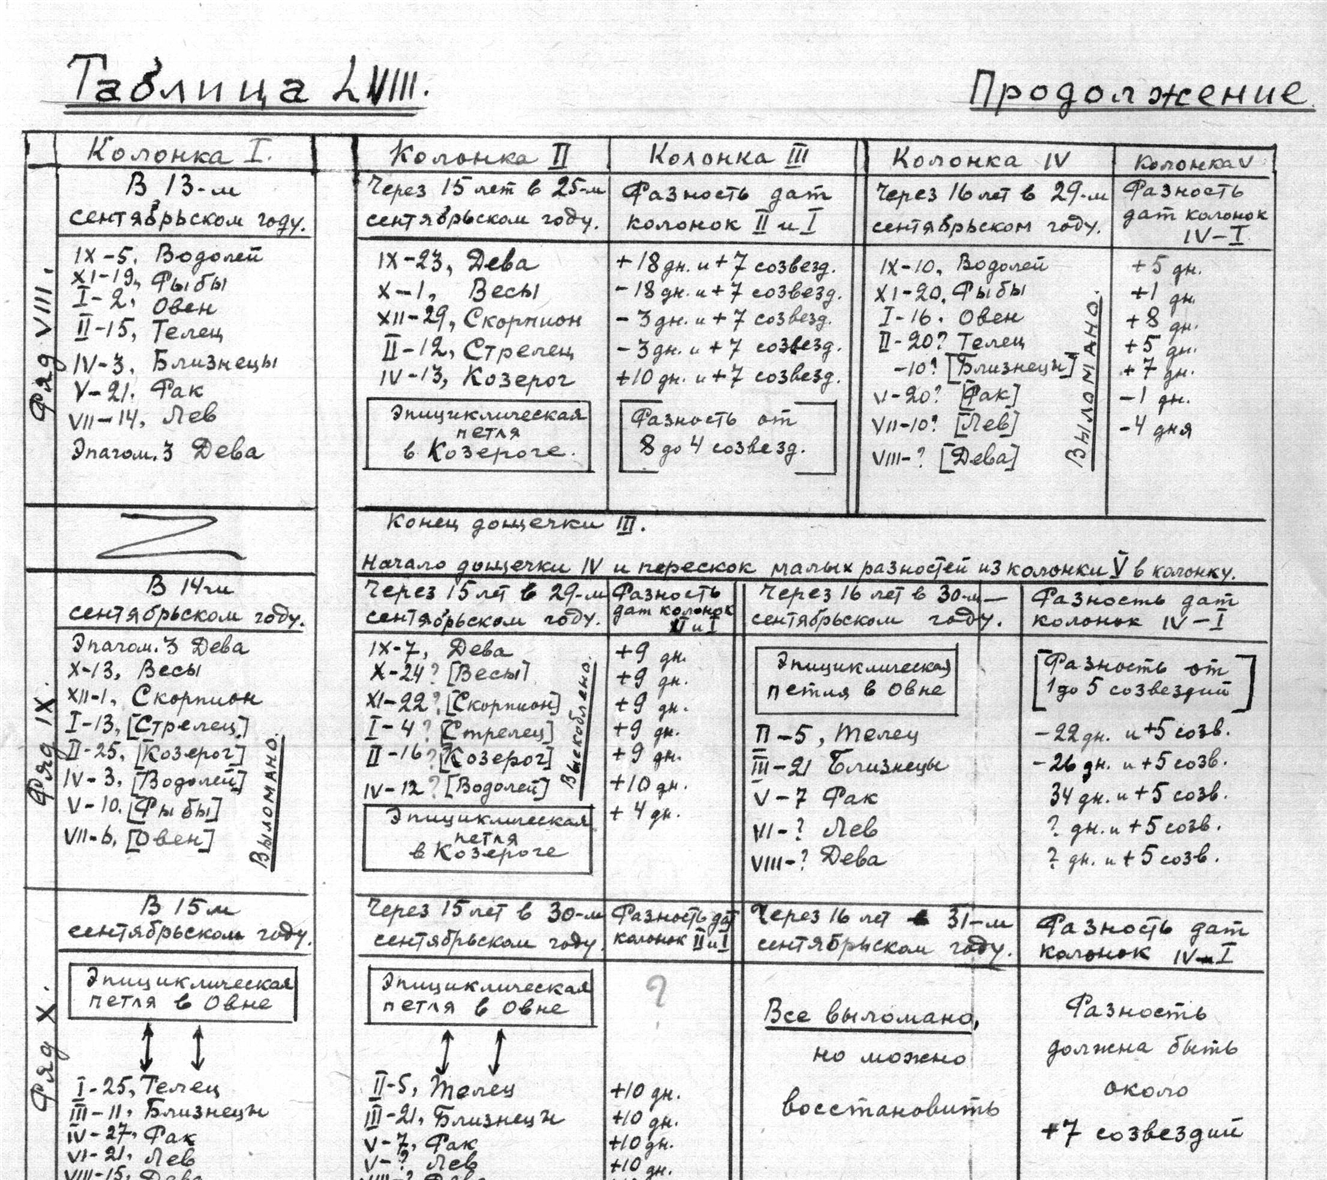 Таблица LVIII.
Продолжение
Колонка I.
Колонка II
Колонка III
Колонка IV
Колонка V
Ряд VIII.
В 13-м
сентябрьском году.
Через 15 лет в 25-м
сентябрьском году.
Разность дат
колонок II и I
Через 16 лет в 29-м
сентябрьском году.
Разность
дат колонок
IV-I
IX-5, Водолей
XI-19, Рыбы
I-2, Овен
II-15, Телец
IV-3, Близнецы
V-21, Рак
VII-14, Лев
Эпагом. 3 Дева
IX-23, Дева
X-1, Весы
XII-29, Скорпион
II-12, Стрелец
IV-13, Козерог
Эпициклическая
петля
в Козероге.
+18 дн. и +7 созвезд.
-18 дн. и +7 созвезд.
-3 дн. и +7 созвезд.
-3 дн. и +7 созвезд.
+10 дн. и +7 созвезд.
Разность от
8 до 4 созвезд.
IX-10, Водолей
XI-20, Рыбы
I-16. Овен
II-20? Телец
-10? [Близнецы]
V-20? [Рак]
VII-10? [Лев]
VIII-? [Дева]
Выломано.
+5 дн.
+1 дн.
+8 дн.
+5 дн.
+7 дн.
-1 дн.
-4 дня
Конец дощечки III.
Начало дощечки IV и перескок малых разностей из колонки V в колонку.
Ряд IX
В 14м
сентябрьском году.
Через 15 лет в 29-м
сентябрьском году.
Разность
дат колонок
II и I
Через 16 лет в 30-м
сентябрьском году.
Разность дат
колонок IV-I
Эпагом. 3 Дева
X-13, Весы
XII-1, Скорпион
I-13, [Стрелец]
II-25, [Козерог]
IV-3, [Водолей]
V-10, [Рыбы]
VII-6, [Овен]
Выломано.
IX-7, Дева
X-24? [Весы]
XI-22? [Скорпион]
I-4? [Стрелец]
II-16? [Козерог]
IV-12? [Водолей]
Выскоблено.
Эпициклическая
петля
в Козероге
+9 дн.
+9 дн.
+9 дн.
+9 дн.
+9 дн.
+10 дн.
+4 дн.
Эпициклическая
петля в Овне
II-5, Телец
III-21 Близнецы
V-7 Рак
VI-? Лев
VIII-? Дева
[Разность от
1 до 5 созвездий]
-22 дн. и +5 созв.
-26 дн. и +5 созв.
34 дн. и +5 созв.
? дн. и +5 созв.
? дн. и +5 созв.
Ряд X.
В 15м
сентябрьском году.
Через 15 лет в 30-м
сентябрьском году
Разность дат
колонок II и I
Через 16 лет в 31-м
сентябрьском году.
Разность дат
колонок IV-I
Эпициклическая
петля в Овне
I-25, Телец
III-11, Близнецы
IV-27, Рак
VI-21, Лев
VIII-15, Дева
Эпициклическая
петля в Овне
II-5, Телец
III-21, Близнецы
V-7, Рак
V-? Лев
?
+10 дн.
+10 дн.
+10 дн.
+10 дн.
Все выломано,
но можно
восстановить
Разность
должна быть
около
+7 созвездий